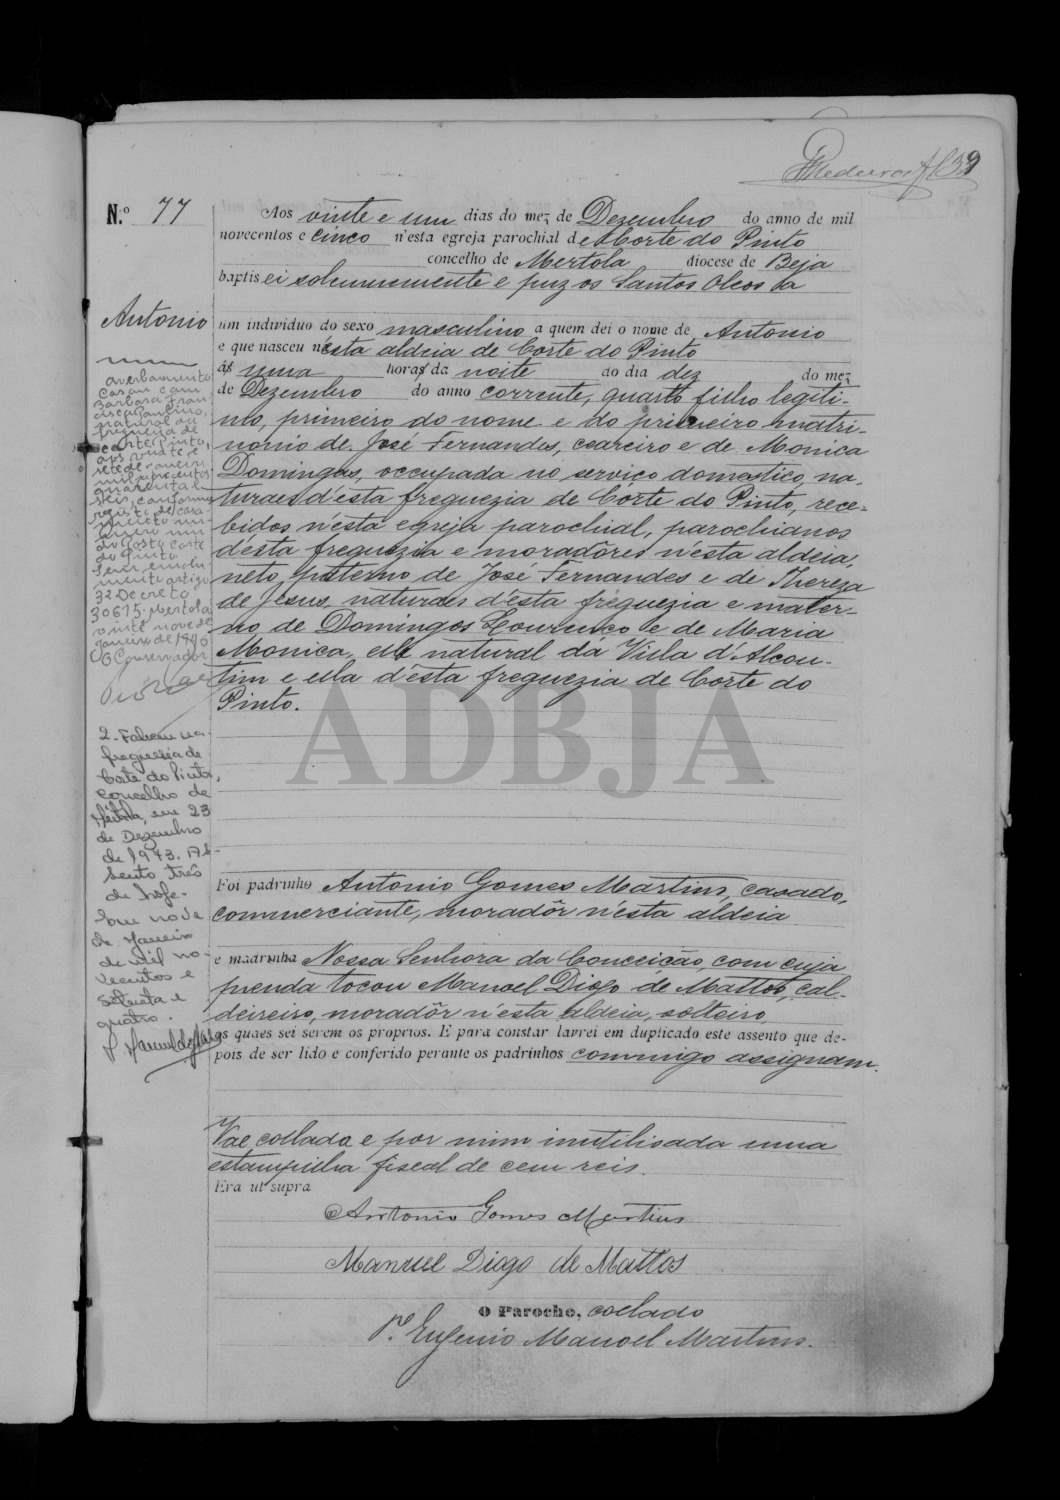 39
N.º 77
Aos vinte e um dias do mez de Dezembro do anno de mil
novecentos e cinco n'esta egreja parochial de Corte do Pinto
concelho de Mertola diocese de Beja
baptisei solemnemente e puz os Santos Oleos a
Antonio
um individuo do sexo masculino a quem dei o nome de Antonio
e que nasceu n'esta aldeia de Corte do Pinto
ás uma horas da noite do dia dez do mez
de Dezembro do anno corrente, quarto filho legiti-
mo, primeiro do nome e do primeiro matri-
monio de José Fernandes, ceareiro e de Monica
Domingas, occupada no serviço domestico, na-
turaes d'esta freguezia de Côrte do Pinto, rece-
bidos n'esta egreja parochial, parochianos
d'esta freguezia e moradôres n'esta aldeia,
neto paterno de José Fernandes e de Thereza
de Jesus, naturaes d'esta freguezia e mater-
no de Domingos Lourenço e de Maria
Monica, elle natural da Villa d'Alcou-
tim e ella d'esta freguezia de Corte do
Pinto.
Foi padrinho Antonio Gomes Martins, casado,
commerciante, moradôr n'esta aldeia
e madrinha Nossa Senhora da Conceição, com cuja
prenda tocou Manoel Diogo de Mattos, cal-
deireiro, moradôr n'esta aldeia, solteiro,
os quaes sei serem os proprios. E para constar lavrei em duplicado este assento que de-
pois de ser lido e conferido perante os padrinhos commigo assignam.
Vae collada e por mim inutilisada uma
estampilha fiscal de cem reis.
Era ut supra
Antonio Gomes Martins
Manuel Diogo de Mattos
O Parocho, collado
P.e Eugenio Manoel Martins.
averbamento
Casou com
Barbara Fran-
cisca
natural da
freguesia de
Corte Pinto,
aos vinte e
sete de Janeiro
mil novecentos
quarenta e
seis, conforme
registo de casa-
mento nu-
mero um
do Posto Corte
do Pinto
Sem emolu-
mento artigo
32 Decreto
30615. Mertola
vinte nove de
Janeiro de 1946
O Conservador
2. Faleceu na
freguesia de
Corte do Pinto,
concelho de
Mértola, em 23
de Dezembro
de 1973. As-
sento três
de hoje.
Em nove
de Janeiro
de mil no-
vecentos e
setenta e
quatro.
ADBJA